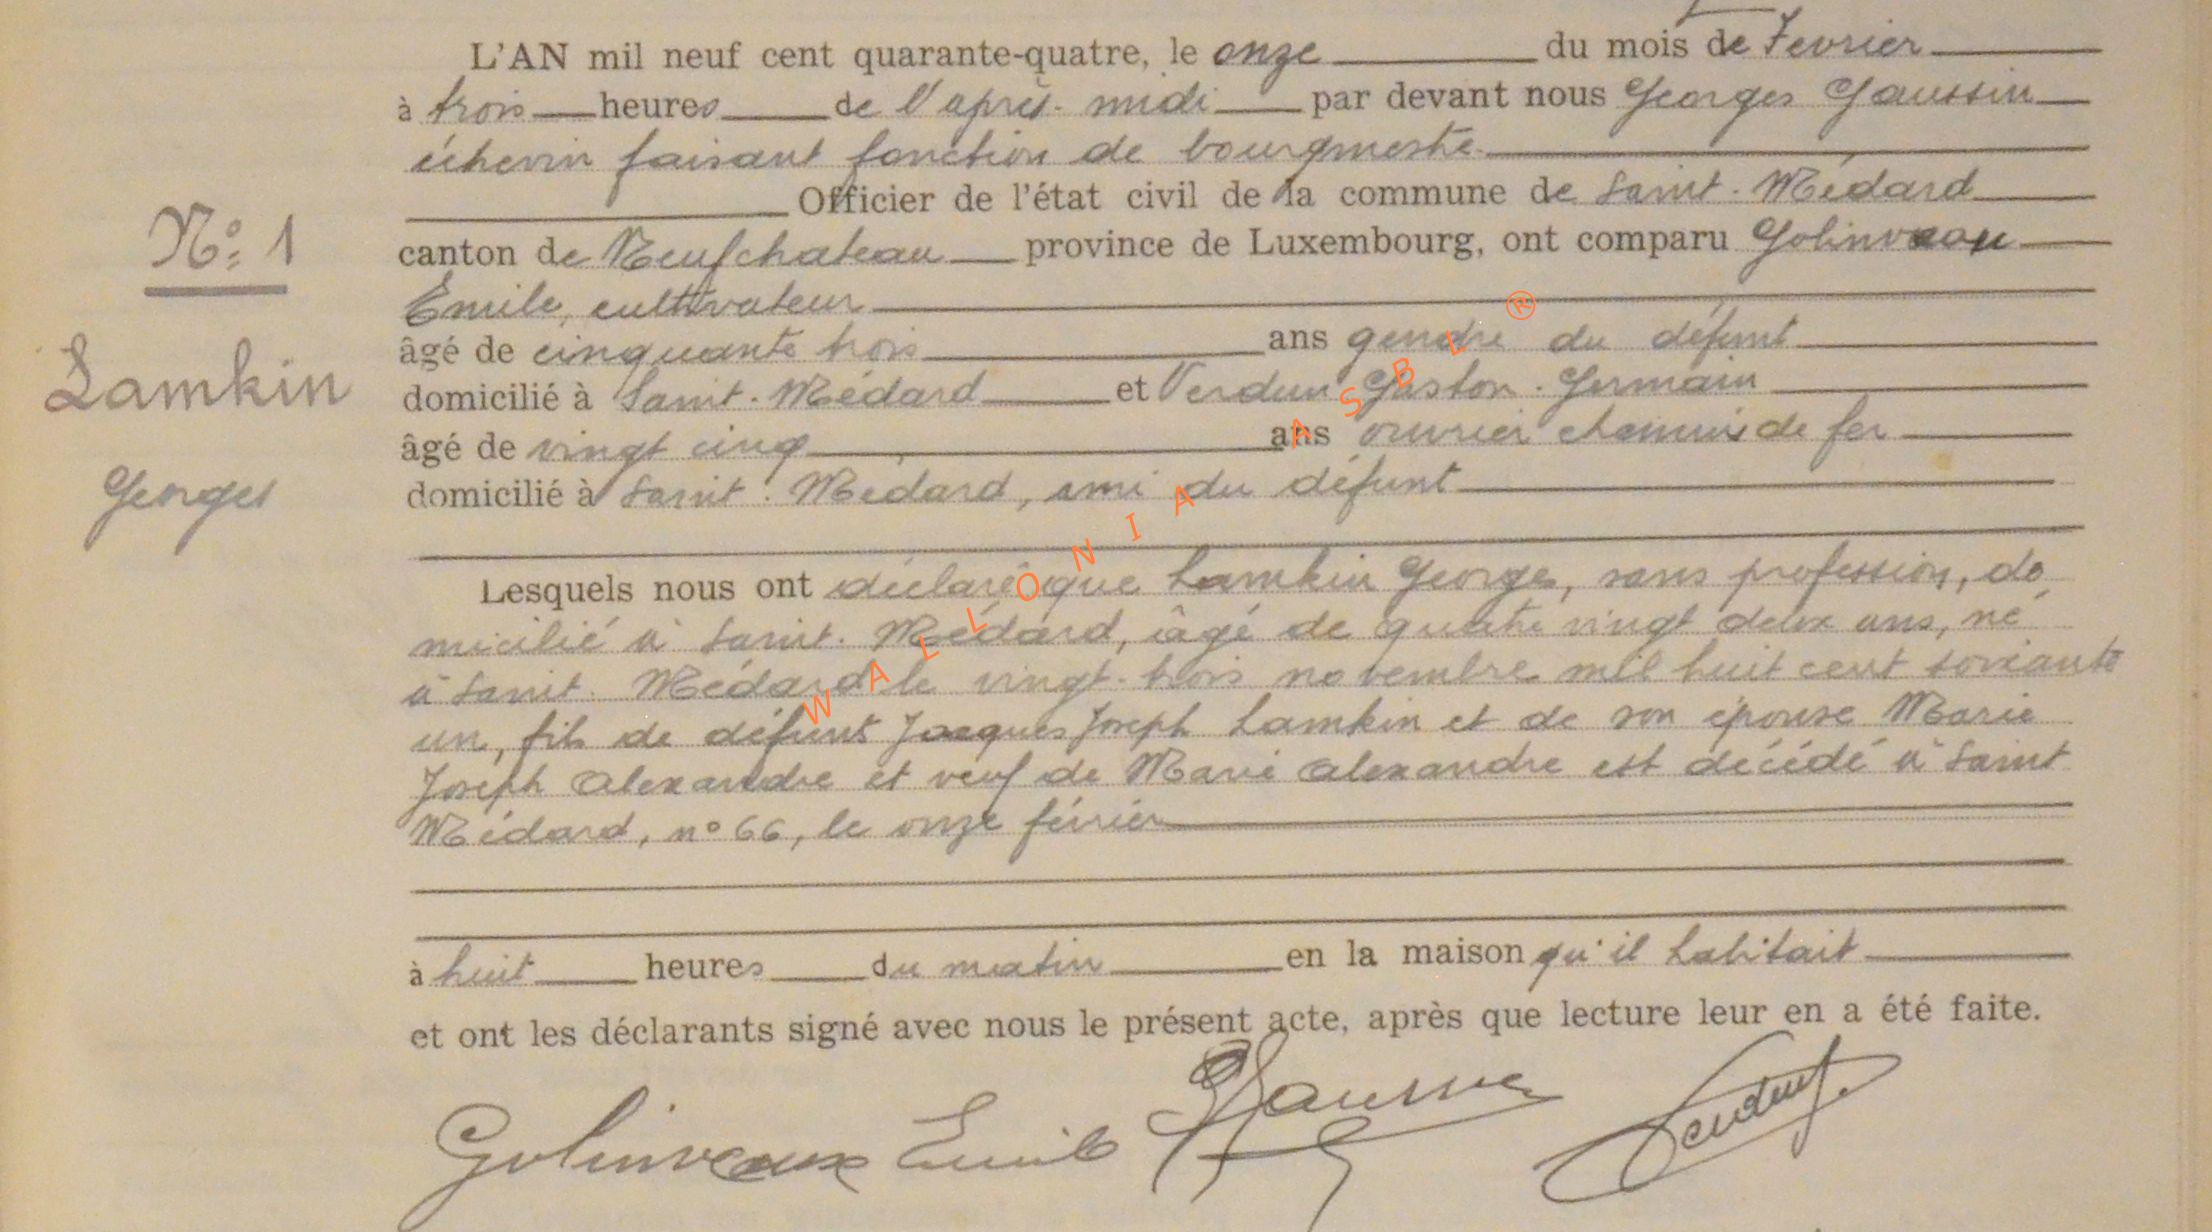 L'AN mil neuf cent quarante-quatre, le onze du mois de Fevrier
à trois heures de l'après-midi par devant nous Georges Gaussin
échevin faisant fonction de bourgmestre
Officier de l'état civil de la commune de Saint-Médard
N° 1
canton de Neufchateau province de Luxembourg, ont comparu Golinvaux
Emile, cultivateur
âgé de cinquante trois ans gendre du défunt
Lamkin
domicilié à Saint-Médard et Verdun Gaston-Germain
âgé de vingt cinq ans ouvrier chemins de fer
Georges
domicilié à Saint-Médard, ami du défunt
Lesquels nous ont déclaré que Lamkin Georges, sans profession, do
micilié à Saint-Médard, âgé de quatre vingt deux ans, né
à Saint-Médard le vingt-trois novembre mil huit cent soixante
un, fils de défunt Jacques Joseph Lamkin et de son épouse Marie
Joseph Alexandre et veuf de Marie Alexandre est décédé à Saint
Médard, n° 66, le onze février
à huit heures du matin en la maison qu'il habitait
et ont les déclarants signé avec nous le présent acte, après que lecture leur en a été faite.
Golinvaux Emile
WALLONIA ASBL ®